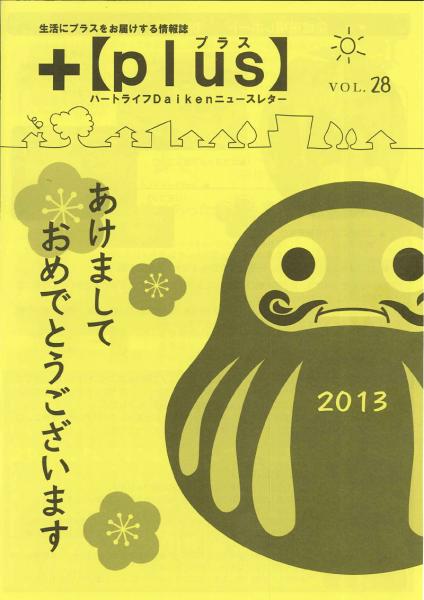 生活にプラスをお届けする情報誌
プラス
+【plus】
ハートライフDaikenニュースレター
VOL.28
あけまして
おめでとうございます
2013